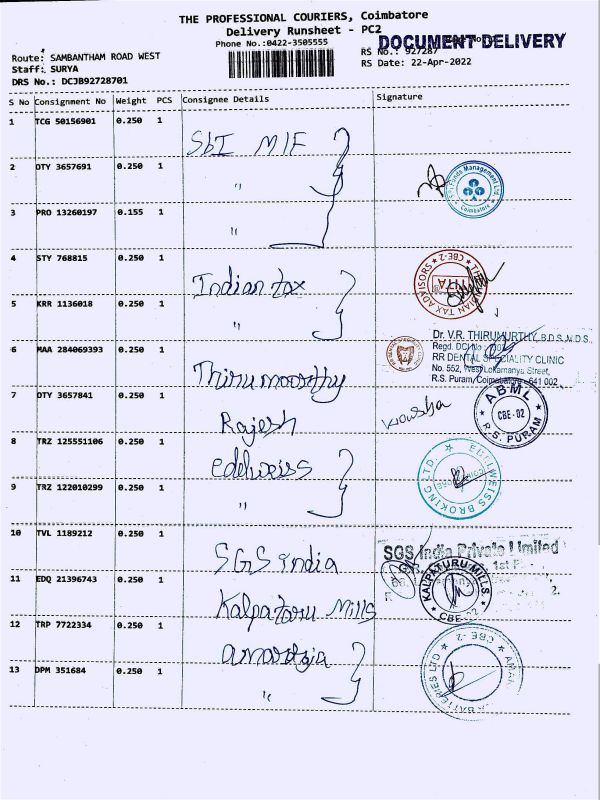 THE PROFESSIONAL COURIERS, Coimbatore
Delivery Runsheet - PC2
Phone No.:0422-3505555
DOCUMENT DELIVERY
Route: SAMBANTHAM ROAD WEST
RS No.: 927287
Staff: SURYA
RS Date: 22-Apr-2022
DRS No.: DCJ3B92728701
S No Consignment No Weight PCS Consignee Details Signature
1 TCG 50156901 0.250 1 SbI MIF
2 OTY 3657691 0.250 1 "
Funds Management Ltd. Coimbatore
3 PRO 13260197 0.155 1 "
4 STY 768815 0.250 1 Indian tax
INDIAN TAX ADVISORS CBE-2
5 KRR 1136018 0.250 1 "
Dr. V.R. THIRUMURTHY, B.D.S, M.D.S.,
Regd. DCI No
RR DENTAL SPECIALITY CLINIC
No. 552, West Lokamanya Street,
R.S. Puram, Coimbatore - 641 002
6 MAA 284069393 0.250 1 Thirumoorthy
7 OTY 3657841 0.250 1 Rajesh
ABML CBE-02 R.S. PURAM
8 TRZ 125551106 0.250 1 edelweiss
EDELWEISS BROKING LTD.
9 TRZ 122010299 0.250 1 "
10 TVL 1189212 0.250 1 SGS India
SGS India Private Limited
1st F
2.
11 EDQ 21396743 0.250 1 Kalpatoru Mills
KALPATURU MILLS CBE-02
12 TRP 7722334 0.250 1 amarraja
13 DPM 351684 0.250 1 "
AMAR BATTERIES LTD CBE-2